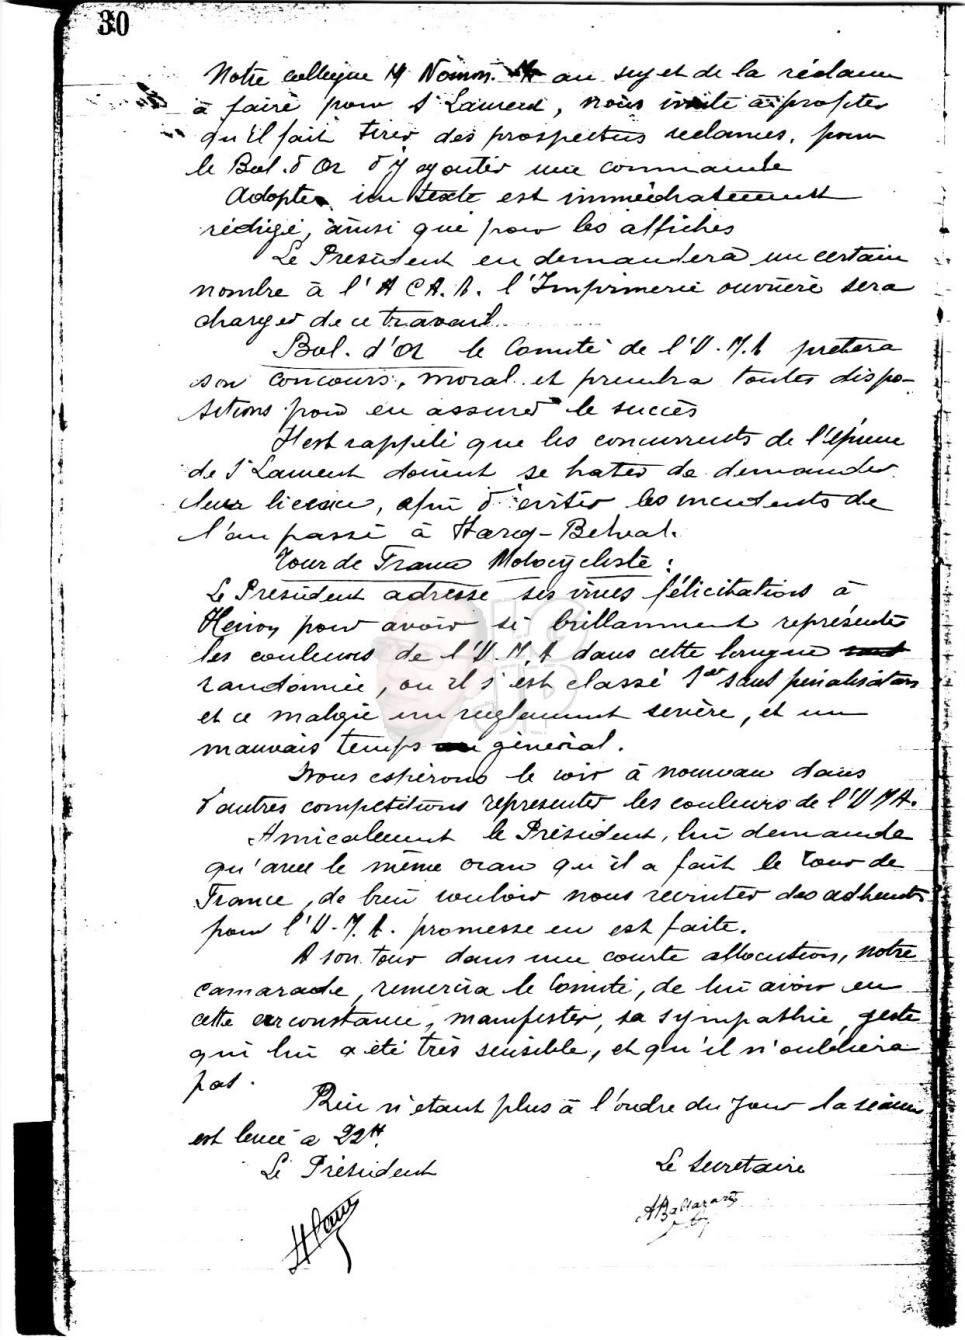 30
Notre collegue M Nomon. au sujet de la réclame
à faire pour St Laurent, nous invite à profiter
qu'il fait tirer des prospectus reclames, pour
le Bol. d'Or d'y ajouter une commande
Adopter un texte est immédiatement
rédigé, ainsi que pour les affiches
Le President en demandera un certain
nombre à l'A C A. l'Imprimerie ouvrière sera
charger de ce travail
Bol. d'Or le Comité de l'U. M. A pretera
son concours, moral et prendra toutes dispo-
sitions pour en assurer le succès
Il est rappelé que les concurrents de l'épreuve
de St Laurent doivent se hater de demander
leur licence, afin d'éviter les incidents de
l'an passé à Harcy-Belval.
Tour de France Motocycliste :
Le President adresse ses vives félicitations à
pour avoir si brillamment représenter
les couleurs de l'U. M. A dans cette longue
randonnée, ou il s'est classé 1er sans pénalisations
et ce malgré un reglement sevère, et un
mauvais temps général.
Nous espérons le voir à nouveau dans
d'autres compétitions representer les couleurs de l'U M A.
Amicalement le Président, lui demande
qu'avec le même cran qu'il a fait le Tour de
France, de bien vouloir nous recruter des adherents
pour l'U. M. A. promesse en est faite.
A son tour dans une courte allocution, notre
camarade, remercia le Comité, de lui avoir en
cette circonstance, manifester, sa sympathie, geste
qui lui a été très sensible, et qu'il n'oubliera
pas.
Rien n'etant plus à l'ordre du jour la séance
est levée a 22H.
Le Président
Le Secretaire
HG